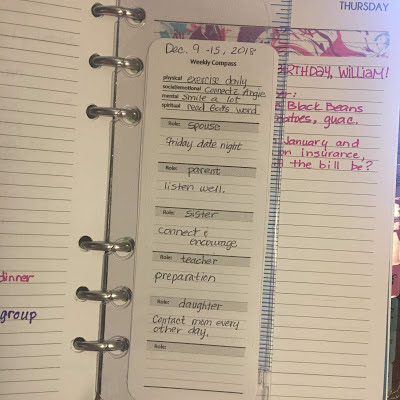 THURSDAY
Dec. 9 -15, 2018
Weekly Compass
physical exercise daily
social/emotional Connect c Angie
mental smile a lot
spiritual read God's word
Role: spouse
Friday date night
Role: parent
listen well.
Role: sister
connect &
encourage
Role: teacher
preparation
Role: daughter
Contact mom every
other day.
Role:
BIRTHDAY, WILLIAM!
Black Beans
guac.
January and
on insurance,
the bill be?
dinner
group